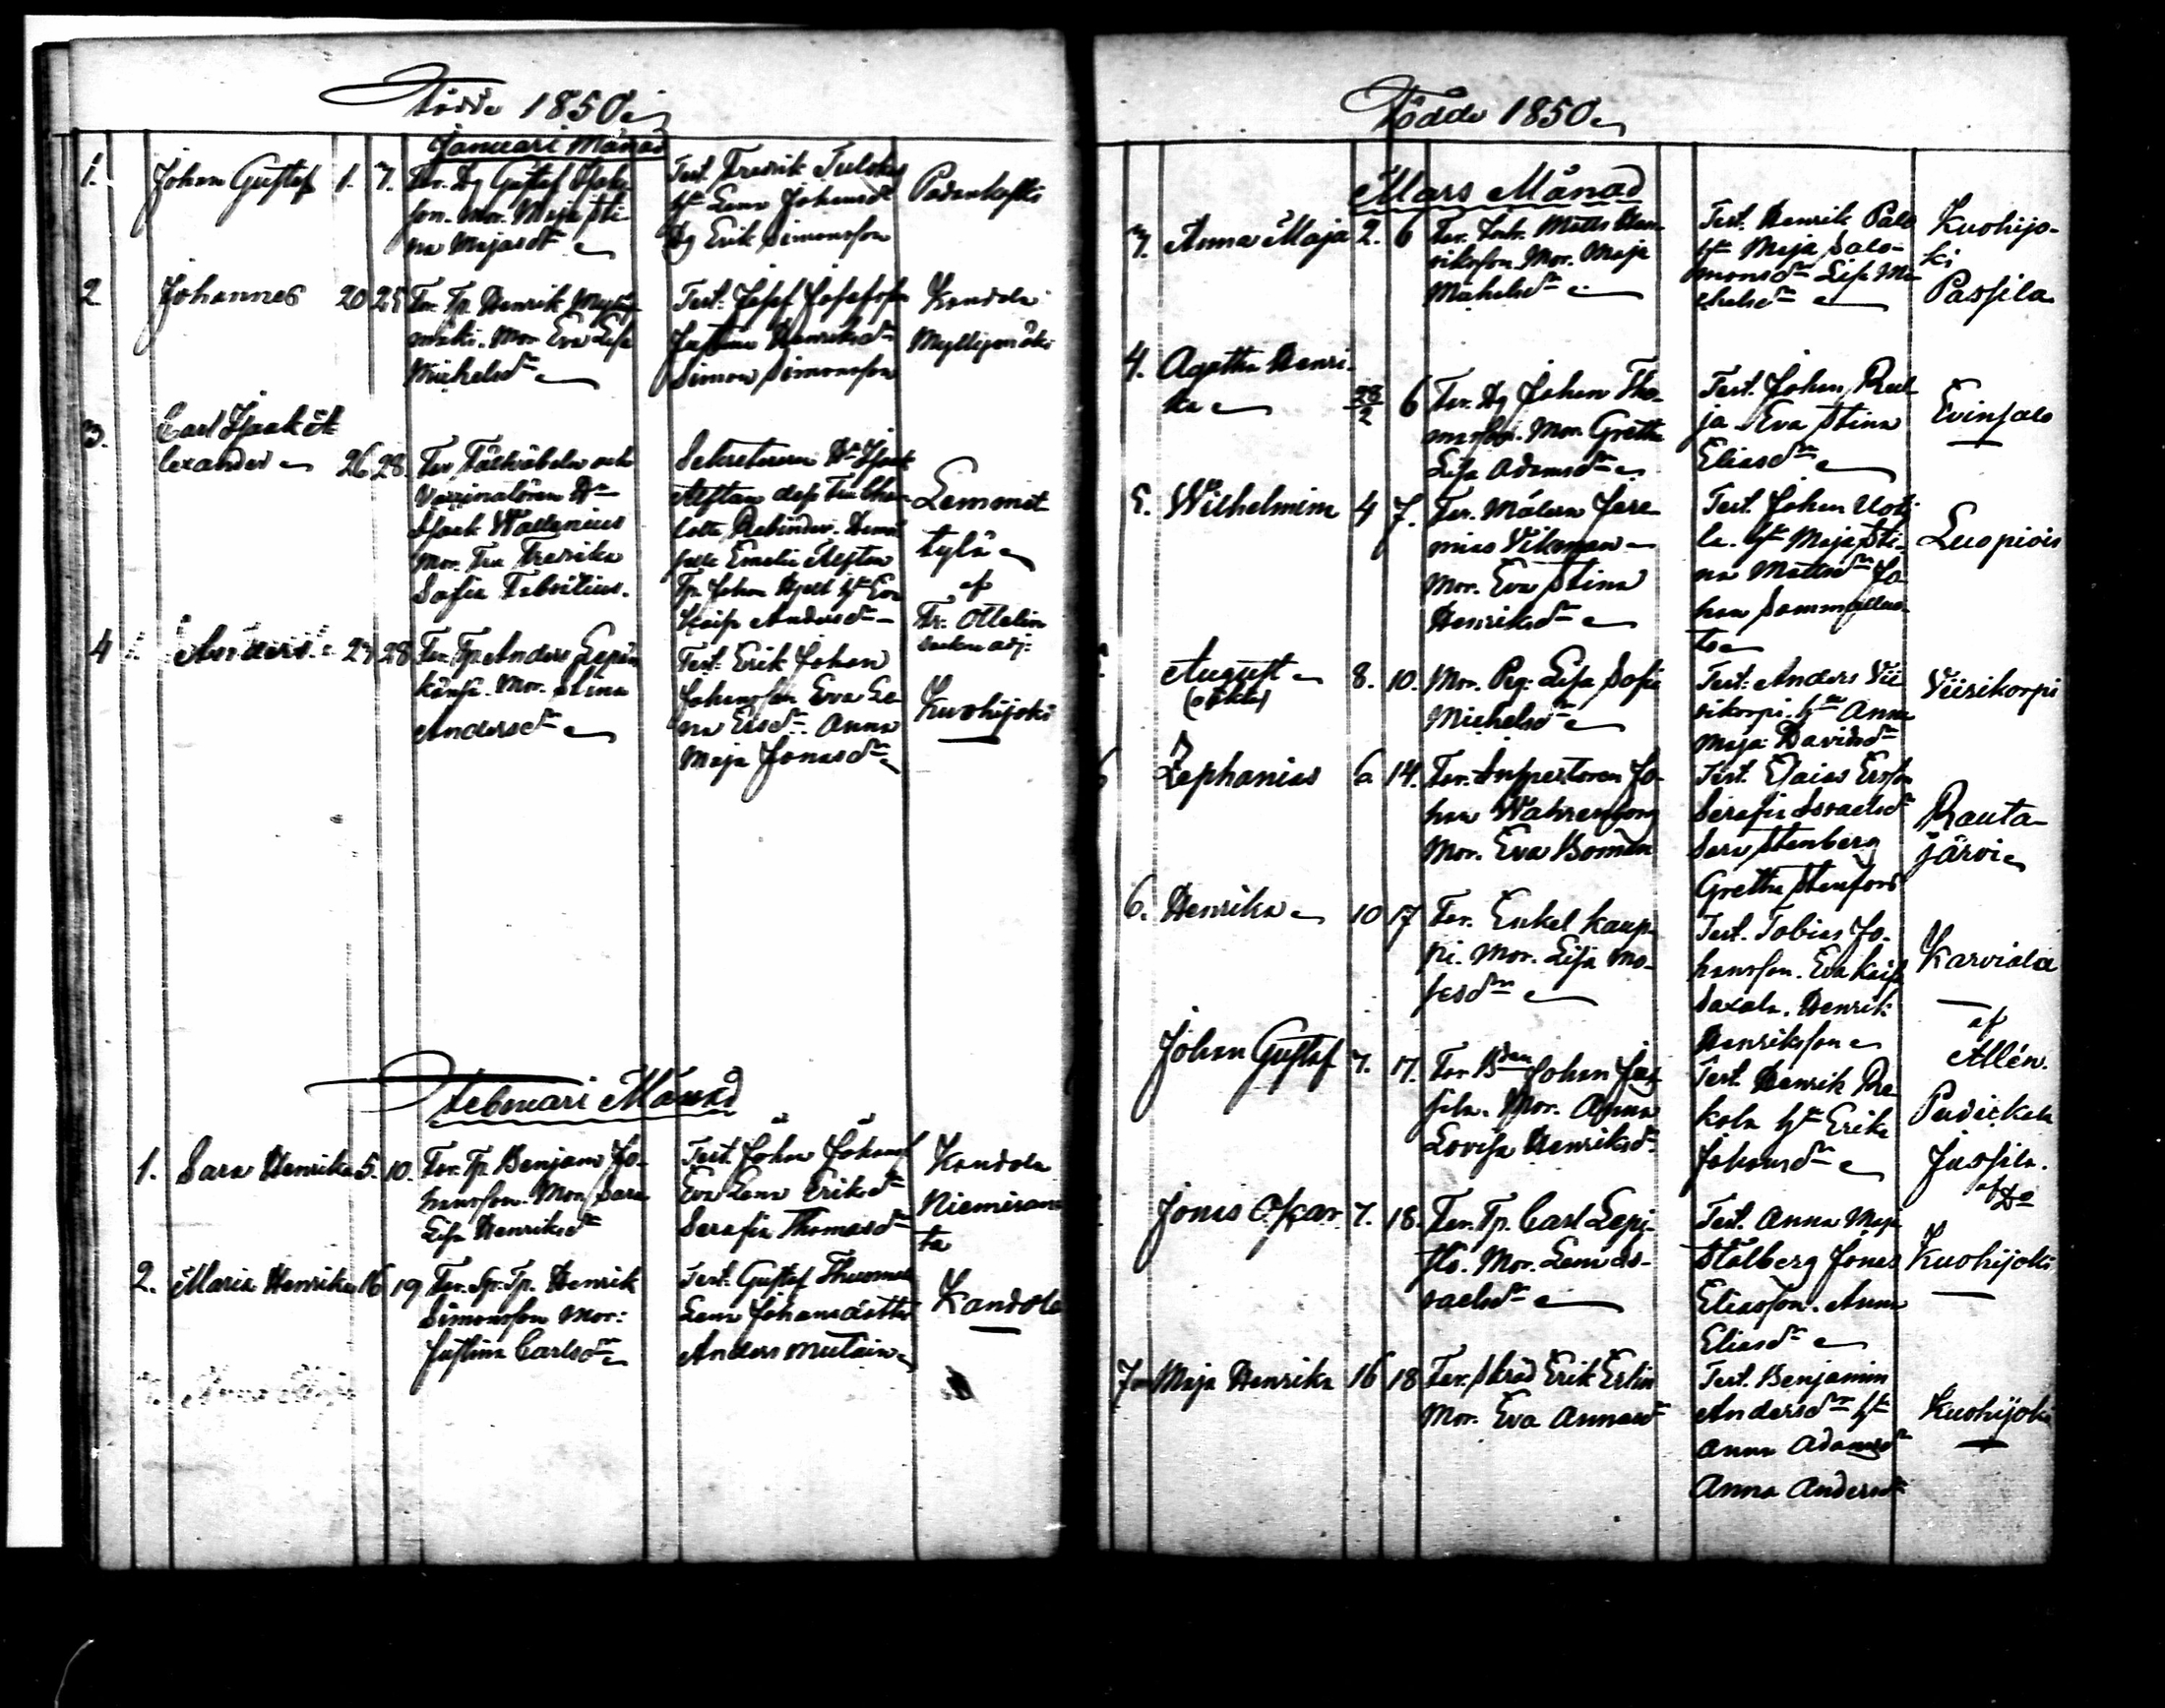 Födde 1850
Januari Månad
1. Johan Gustaf 1. 7. Far. Dg Gustaf Isaks-
son. Mor. Maja Sti-
na Majasdr
Test. Fredrik
hu Lena Johansdr
Dg Erik Simonsson
Padankoski
2 Johannes 20 25 Far. Tp. Henrik
mäki. Mor Eva Lisa
Michelsdr
Test. Josef Josefsson
Justina Henriksdr
Simon Simonsson
Kandola
Myllynmäki
3. Carl Isaak A-
lexander 26 28 Far Fältväbeln och
Vaccinatören Hr
Isaak Wallenius
Mor. Fru Fredrika
Sofia Fabritius.
Sekreteraren Hr Isaak
Alftan dess Fru Char-
lotta Rehinder. Demoi-
selle Emelie Alftan
Tp. Johan Hjelt hu Eva
Kaisa Andersdr
Lemmet-
tylä
af
Hr. Ottelin
sockne adj.
4 1. Anders 27 28 Far. Tp Anders Lepän-
känsä. Mor. Stina
Andersdr
Test. Erik Johan
Johansson Eva Le-
na Ersdr. Anna
Maja Jonasdr
Kuohijoki
Februari Månad
1. Sara Henrika 5. 10. Far. Tp. Benjam Jo-
hansson. Mor. Sara
Lisa Henriksdr
Test. Johan Johans
Eva Lena Eriksdr
Serafia Thomasdr
Kandola
Niemiran-
ta
2. Maria Henrika 16 19 Far. Sp. Tp. Henrik
Simonsson Mor:
Justina Carlsdr
Test. Gustaf Thuomas
Lena Johansdotter
Anders Mutain
Kandola
Anna Maja
Födde 1850
Mars Månad
3. Anna Maja 2. 6 Far. Torp. Matts Hen-
riksson. Mor. Maja
Michelsdr
Test. Henrik Palo
hu Maja Salo-
monsdr Lisa Mi-
chelsdr
Kuohijo-
ki
Passila
4. Agatha Henri-
ka 28/2 6 Far. Dg Johan Tho-
masson. Mor. Gretha
Lisa Adamsdr
Test. Johan
ja Eva Stina
Eliasdr
Evinsalo
5. Wilhelmina 4 7. Far. Målarn Jere-
mias Vikman
Mor. Eva Stina
Henriksdr
Test. Johan Uoti-
la. hu Maja Sti-
na Mattsdr Jo-
han
to
Luopiois
August 8. 10. Mor. Pig. Lisa Sofia
(oäkta)
Michelsdr
Test: Anders Vii-
rikorpi. hu Anna
Maja Davidsdr
Viirikorpi
6 Zephanias 6. 14. Far. Inspectoren Jo-
han Wahrenborg
Mor. Eva Bomán
Test. Esaias Ersson
Serafia Israelsdr
Sara Stenberg
Gretha Stenfors
Rauta-
järvi
6. Henrika 10 17 Far. Enkel Kaup-
pi. Mor. Lisa Mo-
sesdr
Test. Tobias Jo-
hansson. Eva Kaisa
Saxala. Henrik
Henriksson
Karviala
af
Allén.
Johan Gustaf 7. 17. Far Bdn Johan Jus-
sila. Mor. Anna
Lovisa Henriksdr
Test. Henrik
kola hu Erika
Johansdr
Jussila.
af Do
Jonas Oskar 7. 18. Far. Tp. Carl Lepi-
stö. Mor. Lena Is-
raelsdr
Test. Anna Maja
Stålberg Jonas
Eliasson. Anna
Eliasdr
Kuohijoki
7 Maja Henrika 16 18 Far. Skrad Erik Erlin
Mor. Eva Annasdr
Test. Benjamin
Andersdr hu
Anna Adamsdr
Anna Andersdr
Kuohijoki